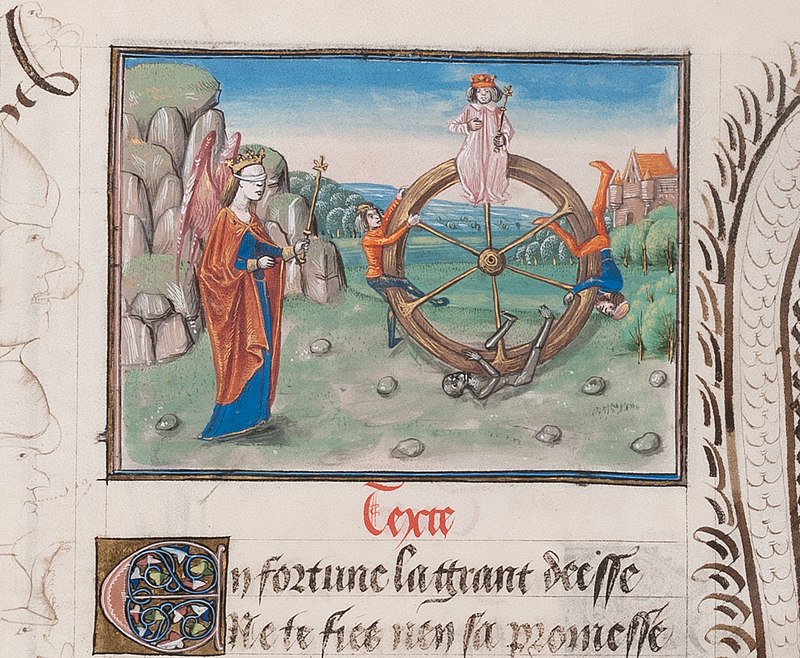 Texte
En fortune la grant deesse
Ne te fies n'en sa promesse